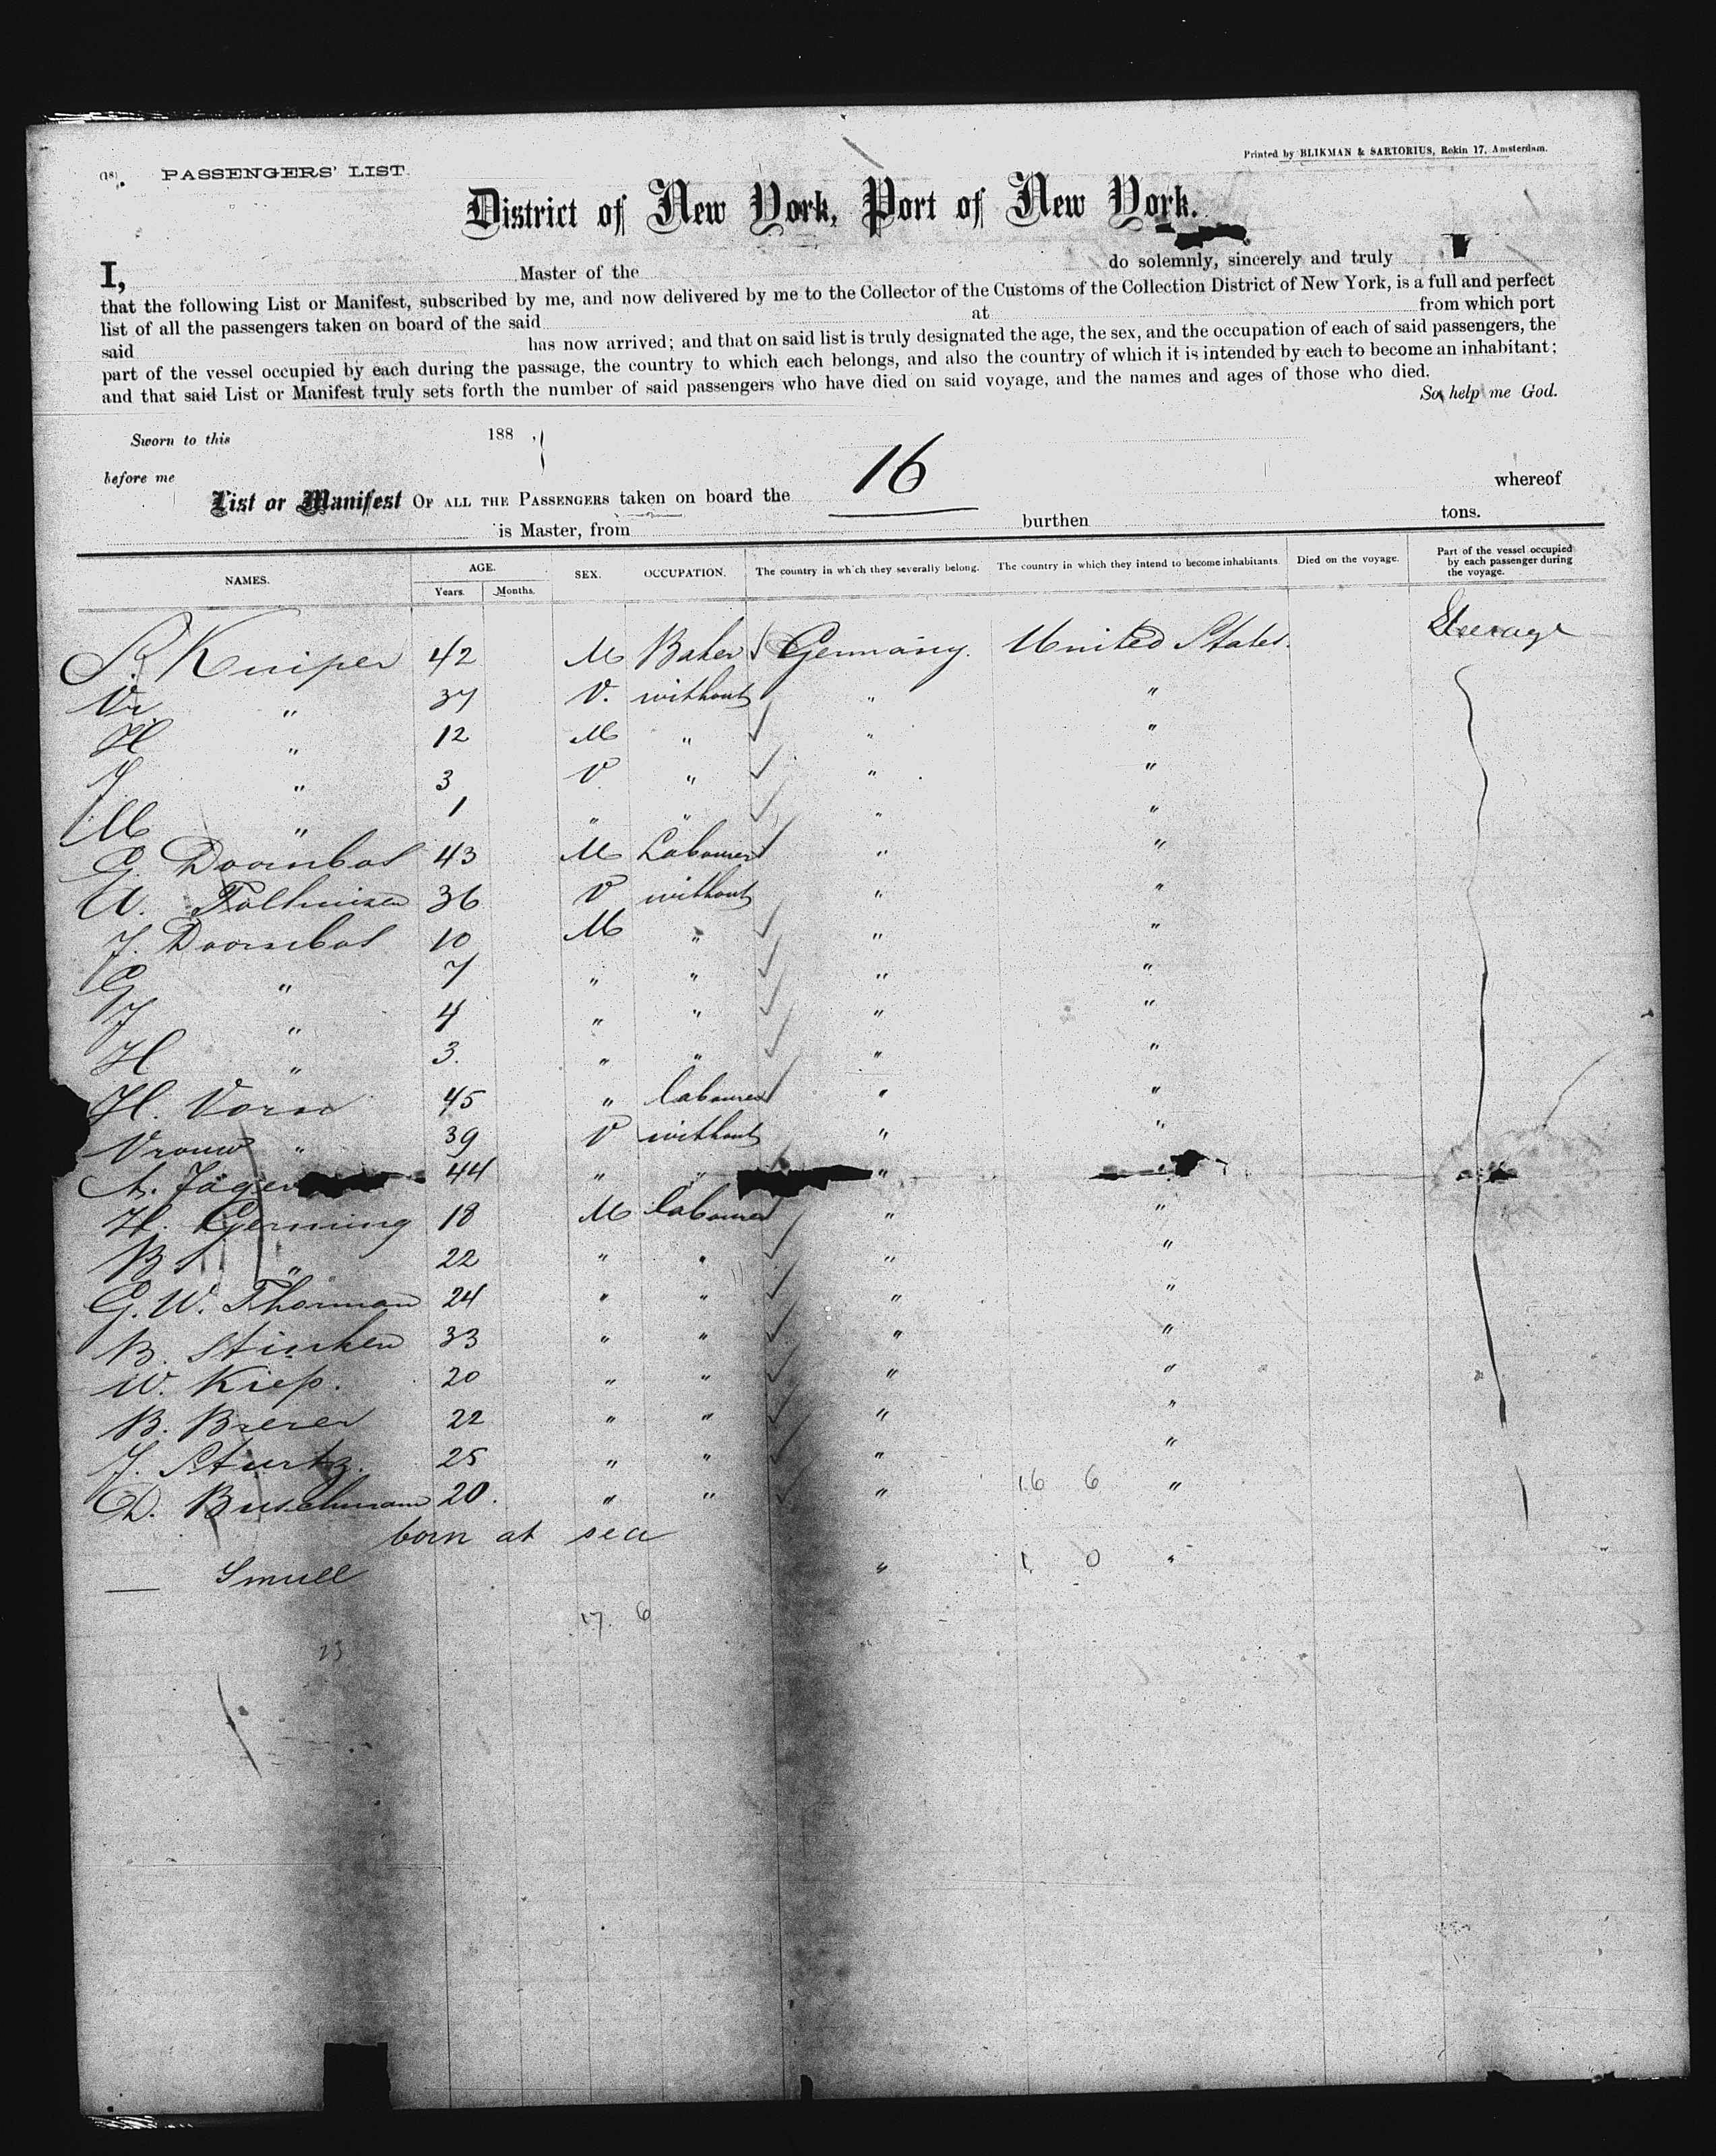 (18) PASSENGERS' LIST.
Printed by BLIKMAN & SARTORIUS, Rokin 17, Amsterdam.
District of New York, Port of New York.
I, Master of the do solemnly, sincerely and truly
that the following List or Manifest, subscribed by me, and now delivered by me to the Collector of the Customs of the Collection District of New York, is a full and perfect
list of all the passengers taken on board of the said at from which port
said has now arrived; and that on said list is truly designated the age, the sex, and the occupation of each of said passengers, the
part of the vessel occupied by each during the passage, the country to which each belongs, and also the country of which it is intended by each to become an inhabitant;
and that said List or Manifest truly sets forth the number of said passengers who have died on said voyage, and the names and ages of those who died.
So help me God.
Sworn to this 188 ,
before me
16
List or Manifest OF ALL THE PASSENGERS taken on board the whereof
is Master, from burthen tons.
NAMES. AGE. Years. Months. SEX. OCCUPATION. The country in which they severally belong. The country in which they intend to become inhabitants. Died on the voyage. Part of the vessel occupied by each passenger during the voyage.
Kuiper 42 M Baker Germany. United States. Steerage
Vr. " 37 V. without " "
H " 12 M " " "
J. " 3 V " " "
M " 1 " " " "
G. Doornbos 43 M Labourer " "
36 V without " "
J. Doornbos 10 M " " "
G " 7 " " " "
J " 4 " " " "
H " 3. " " " "
H. 45 " labourer " "
Vrouw " 39 V without " "
A. Jager 44 " " " "
H. Germing 18 M labourer " "
B " 22 " " " "
G. W. Thorman 24 " " " "
B. Stinken 33 " " " "
W. Kiep. 20 " " " "
B. 22 " " " "
J. Sturtz. 25 " " " "
D. Buschmann 20. " " " 16 6 "
born at sea
— Smull " 1 0 "
17. 6
23